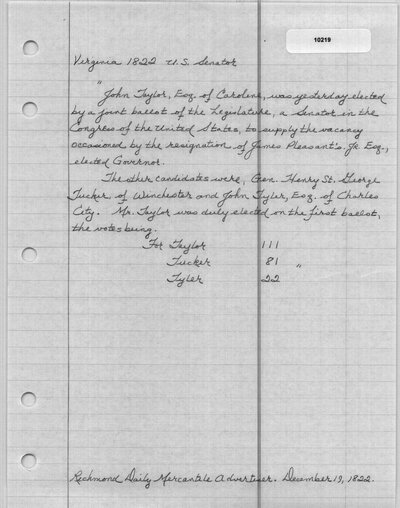 10219
Virginia 1822 U.S. Senator
"John Taylor, Esq. of Caroline, was yesterday elected
by a joint ballot of the Legislature, a Senator in the
Congress of the United States, to supply the vacancy
occasioned by the resignation of James Pleasant's. Jr. Esq.,
elected Governor.
The other candidates were, Gen. Henry St. George
Tucker of Winchester and John Tyler, Esq. of Charles
City. Mr. Taylor was duly elected on the first ballot,
the votes being.
For Taylor 111
Tucker 81 "
Tyler 22
Richmond Daily Mercantile Advertiser. December 19, 1822.